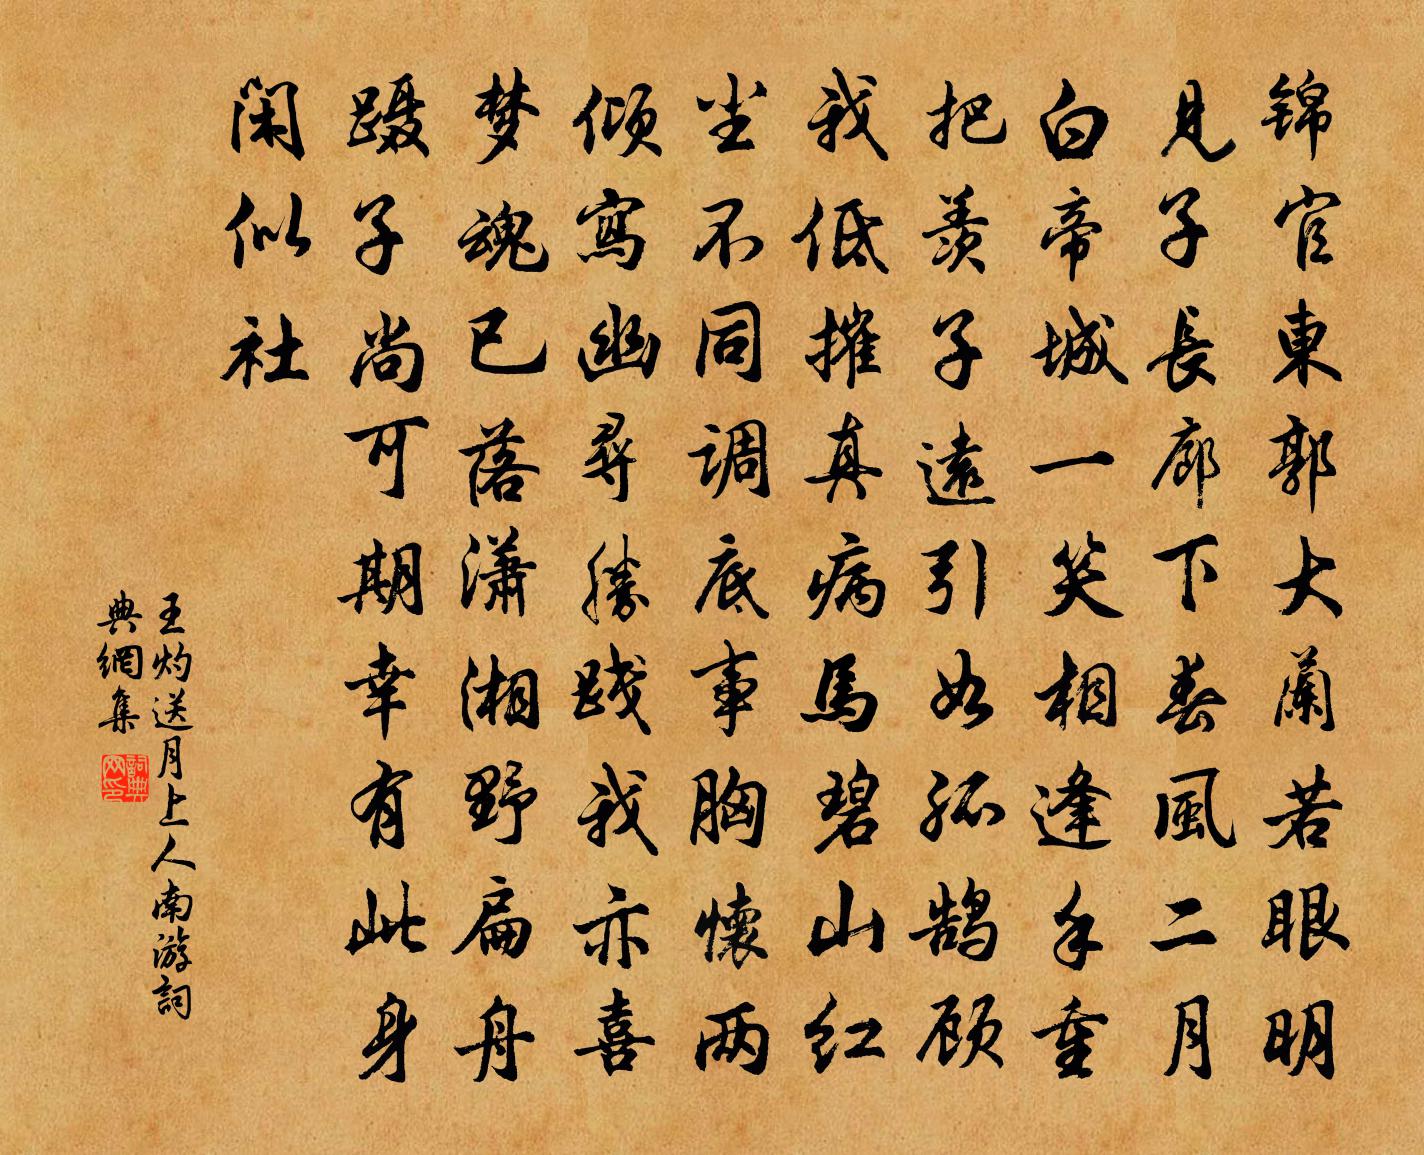 锦官東郭大蘭若眼明
見子長廊下春風二月
白帝城一笑相逢手重
把羡子遠引如孤鹄顾
我低摧真病馬碧山红
尘不同调底事胸懷两
倾寫幽尋勝践我亦喜
梦魂已落潇湘野扁舟
蹑子尚可期幸有此身
闲似社
王灼送月上人南游詞
典網集
詞典
网印